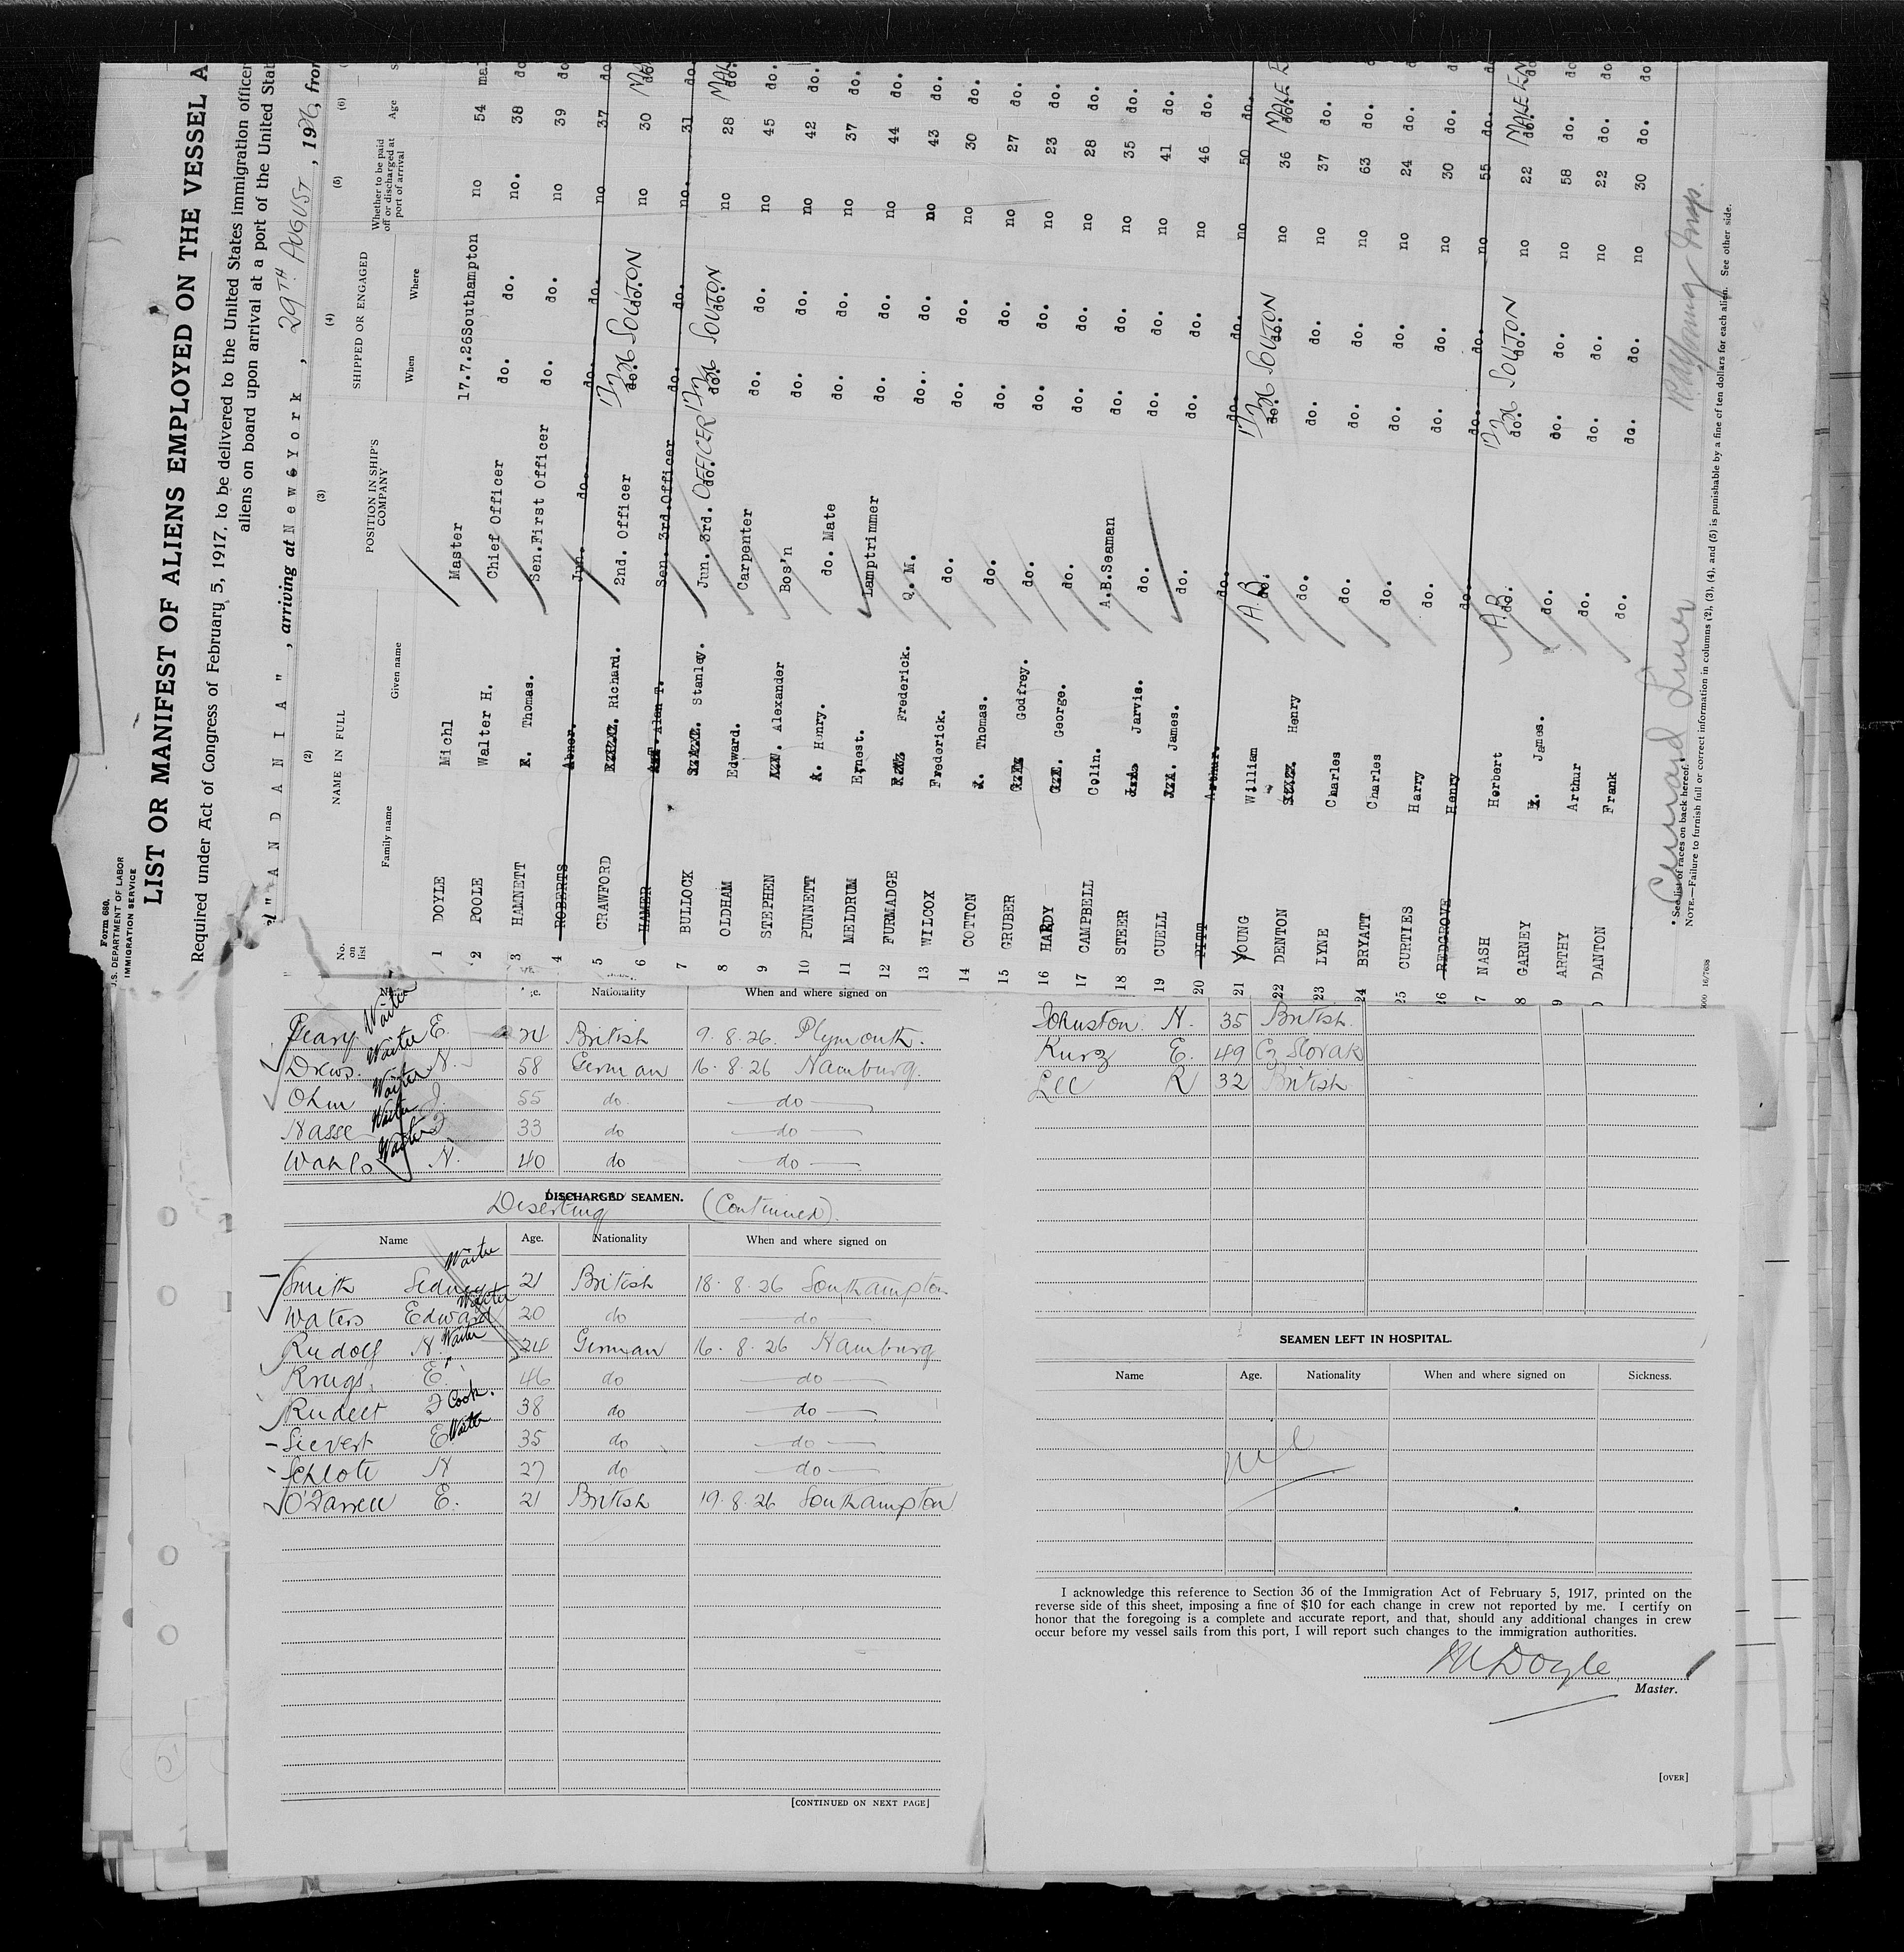 Form 680.
U.S. DEPARTMENT OF LABOR
IMMIGRATION SERVICE
LIST OR MANIFEST OF ALIENS EMPLOYED ON THE VESSEL A
Required under Act of Congress of February 5, 1917, to be delivered to the United States immigration officer
aliens on board upon arrival at a port of the United Stat
"ANDANIA", arriving at New York, 29TH AUGUST, 1926, from
(2) (3) (4) (5) (6)
No. on list
NAME IN FULL
Family name Given name
POSITION IN SHIP'S COMPANY
SHIPPED OR ENGAGED
When Where
Whether to be paid off or discharged at port of arrival
Age
1 DOYLE Michl Master 17.7.26 Southampton no 54 mal
2 POOLE Walter H. Chief Officer do. do. no. 38 do
3 HAMNETT Thomas. Sen.First Officer do. do. no 39 do
4 ROBERTS Abner. Jun. do. do. do. no 37 do
5 CRAWFORD Richard. 2nd. Officer 17/7/26 SOUTON no 30 MA
6 HAMER Alan T. Sen. 3rd.Officer do. do. no. 31 do.
7 BULLOCK Stanley. Jun. 3rd. OFFICER 17/7/26 SOUTON no 28 MAL
8 OLDHAM Edward. Carpenter do. do. no 45 do.
9 STEPHEN Alexander Bos'n do. do. no 42 do.
10 PUNNETT Henry. do. Mate do. do. no 37 do.
11 MELDRUM Ernest. Lamptrimmer do. do. no 44 do.
12 FURMADGE Frederick. Q.M. do. do. no 43 do.
13 WILCOX Frederick. do. do. do. no 30 do.
14 COTTON Thomas. do. do. do. no 27 do.
15 GRUBER Godfrey. do. do. do. no 23 do.
16 HARDY George. do. do. do. no 28 do.
17 CAMPBELL Colin. A.B.Seaman do. do. no 35 do.
18 STEER Jarvis. do. do. do. no 41 do.
19 CUELL James. do. do. do. no 46 do.
20 PITT Arthur. do. do. do. no 50 do.
21 YOUNG William A.B. 17/7/26 SOUTON no 36 MALE E
22 DENTON Henry do. do. do. no 37 do.
23 LYNE Charles do. do. do. no 63 do.
24 BRYATT Charles do. do. do. no 24 do.
25 CURTIES Harry do. do. do. no 30 do.
26 REDGROVE Henry do. do. do. no 55 do.
7 NASH Herbert A.B. 17/7/26 SOUTON no 22 MALE EN
8 GARNEY James. do. do. do. no 58 do.
9 ARTHY Arthur do. do. do. no 22 do.
DANTON Frank do. do. do. no 30 do.
Cunard Liner
* See list of races on back hereof.
NOTE.—Failure to furnish full or correct information in columns (2), (3), (4), and (5) is punishable by a fine of ten dollars for each alien. See other side.
Nationality When and where signed on
Geary Waiter E. 24 British 9.8.26. Plymouth.
Drews. Waiter H. 58 German 16.8.26 Hamburg.
Ohm Waiter J. 55 do do
Hasse Waiter F 33 do do
Wahls Waiter H. 40 do do
DISCHARGED SEAMEN.
Deserting (Continued).
Name Age. Nationality When and where signed on
Smith Sidney Waiter 21 British 18.8.26 Southampton
Waters Edward Waiter 20 do do
Rudolf H. Waiter 24 German 16.8.26 Hamburg
Krugs. E. 46 do do
Rudert F Cook. 38 do do
Sievert E Waiter 35 do do
Schlote H 27 do do
O'Farrell E. 21 British 19.8.26 Southampton
[CONTINUED ON NEXT PAGE]
Johnston H. 35 British.
Kurz E. 49 Cz Slovak
Lee R 32 British
SEAMEN LEFT IN HOSPITAL.
Name Age. Nationality When and where signed on Sickness.
nil
I acknowledge this reference to Section 36 of the Immigration Act of February 5, 1917, printed on the
reverse side of this sheet, imposing a fine of $10 for each change in crew not reported by me. I certify on
honor that the foregoing is a complete and accurate report, and that, should any additional changes in crew
occur before my vessel sails from this port, I will report such changes to the immigration authorities.
M Doyle
Master.
[OVER]